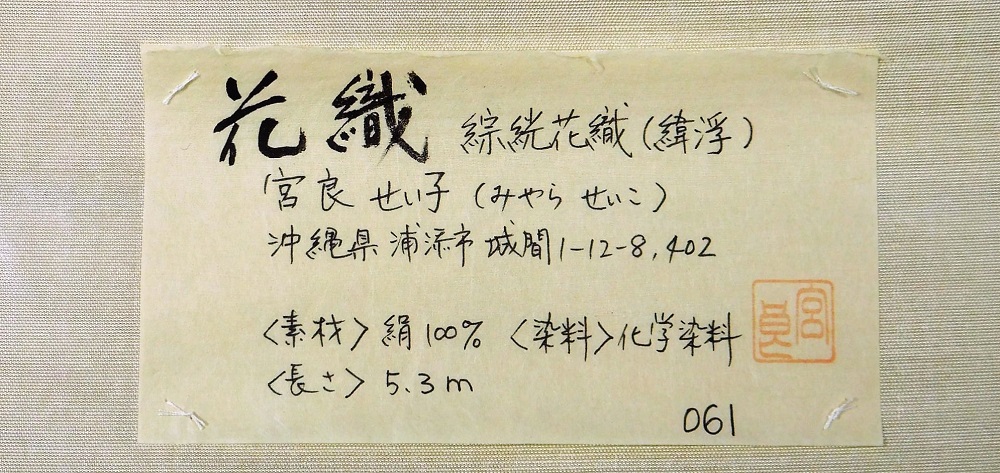 花織 綜絖花織(緯浮)
宮良 せい子 (みやら せいこ)
沖縄県 浦添市 城間1-12-8,402
〈素材〉 絹100% 〈染料〉化学染料
〈長さ〉 5.3m
宮良
061